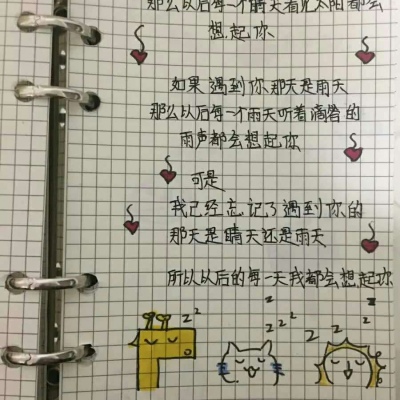 那么以后每一个晴天看见太阳都会
想起你
如果遇到你那天是雨天
那么以后每一个雨天听着滴答的
雨声都会想起你
可是
我已经忘记了遇到你的
那天是晴天还是雨天
所以以后的每一天我都会想起你
z z
z
z z z
z z z